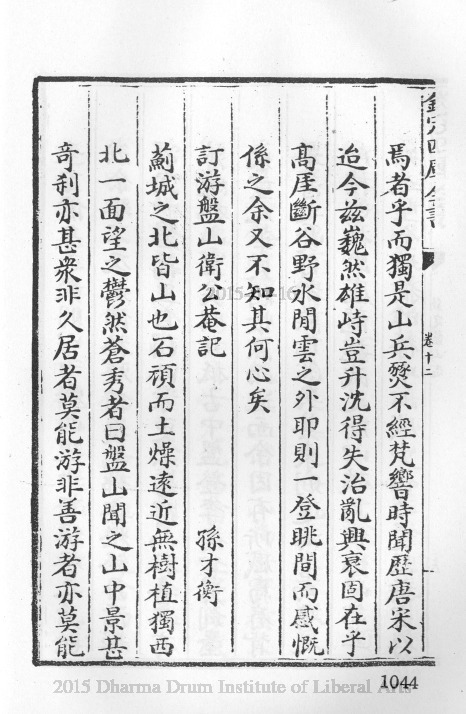 欽定四庫全書
卷十二
焉者乎而獨是山兵燹不經梵響時聞歷唐宋以
迨今兹巍然雄峙豈升沈得失治亂興衰固在乎
髙厓斷谷野水閒雲之外耶則一登眺間而感慨
係之余又不知其何心矣
訂游盤山衛公菴記
孫才衡
薊城之北皆山也石頑而土燥逺近無樹植獨西
北一面望之鬱然蒼秀者曰盤山聞之山中景甚
竒刹亦甚衆非久居者莫能游非善游者亦莫能
1044
2015 Dharma Drum Institute of Liberal Arts